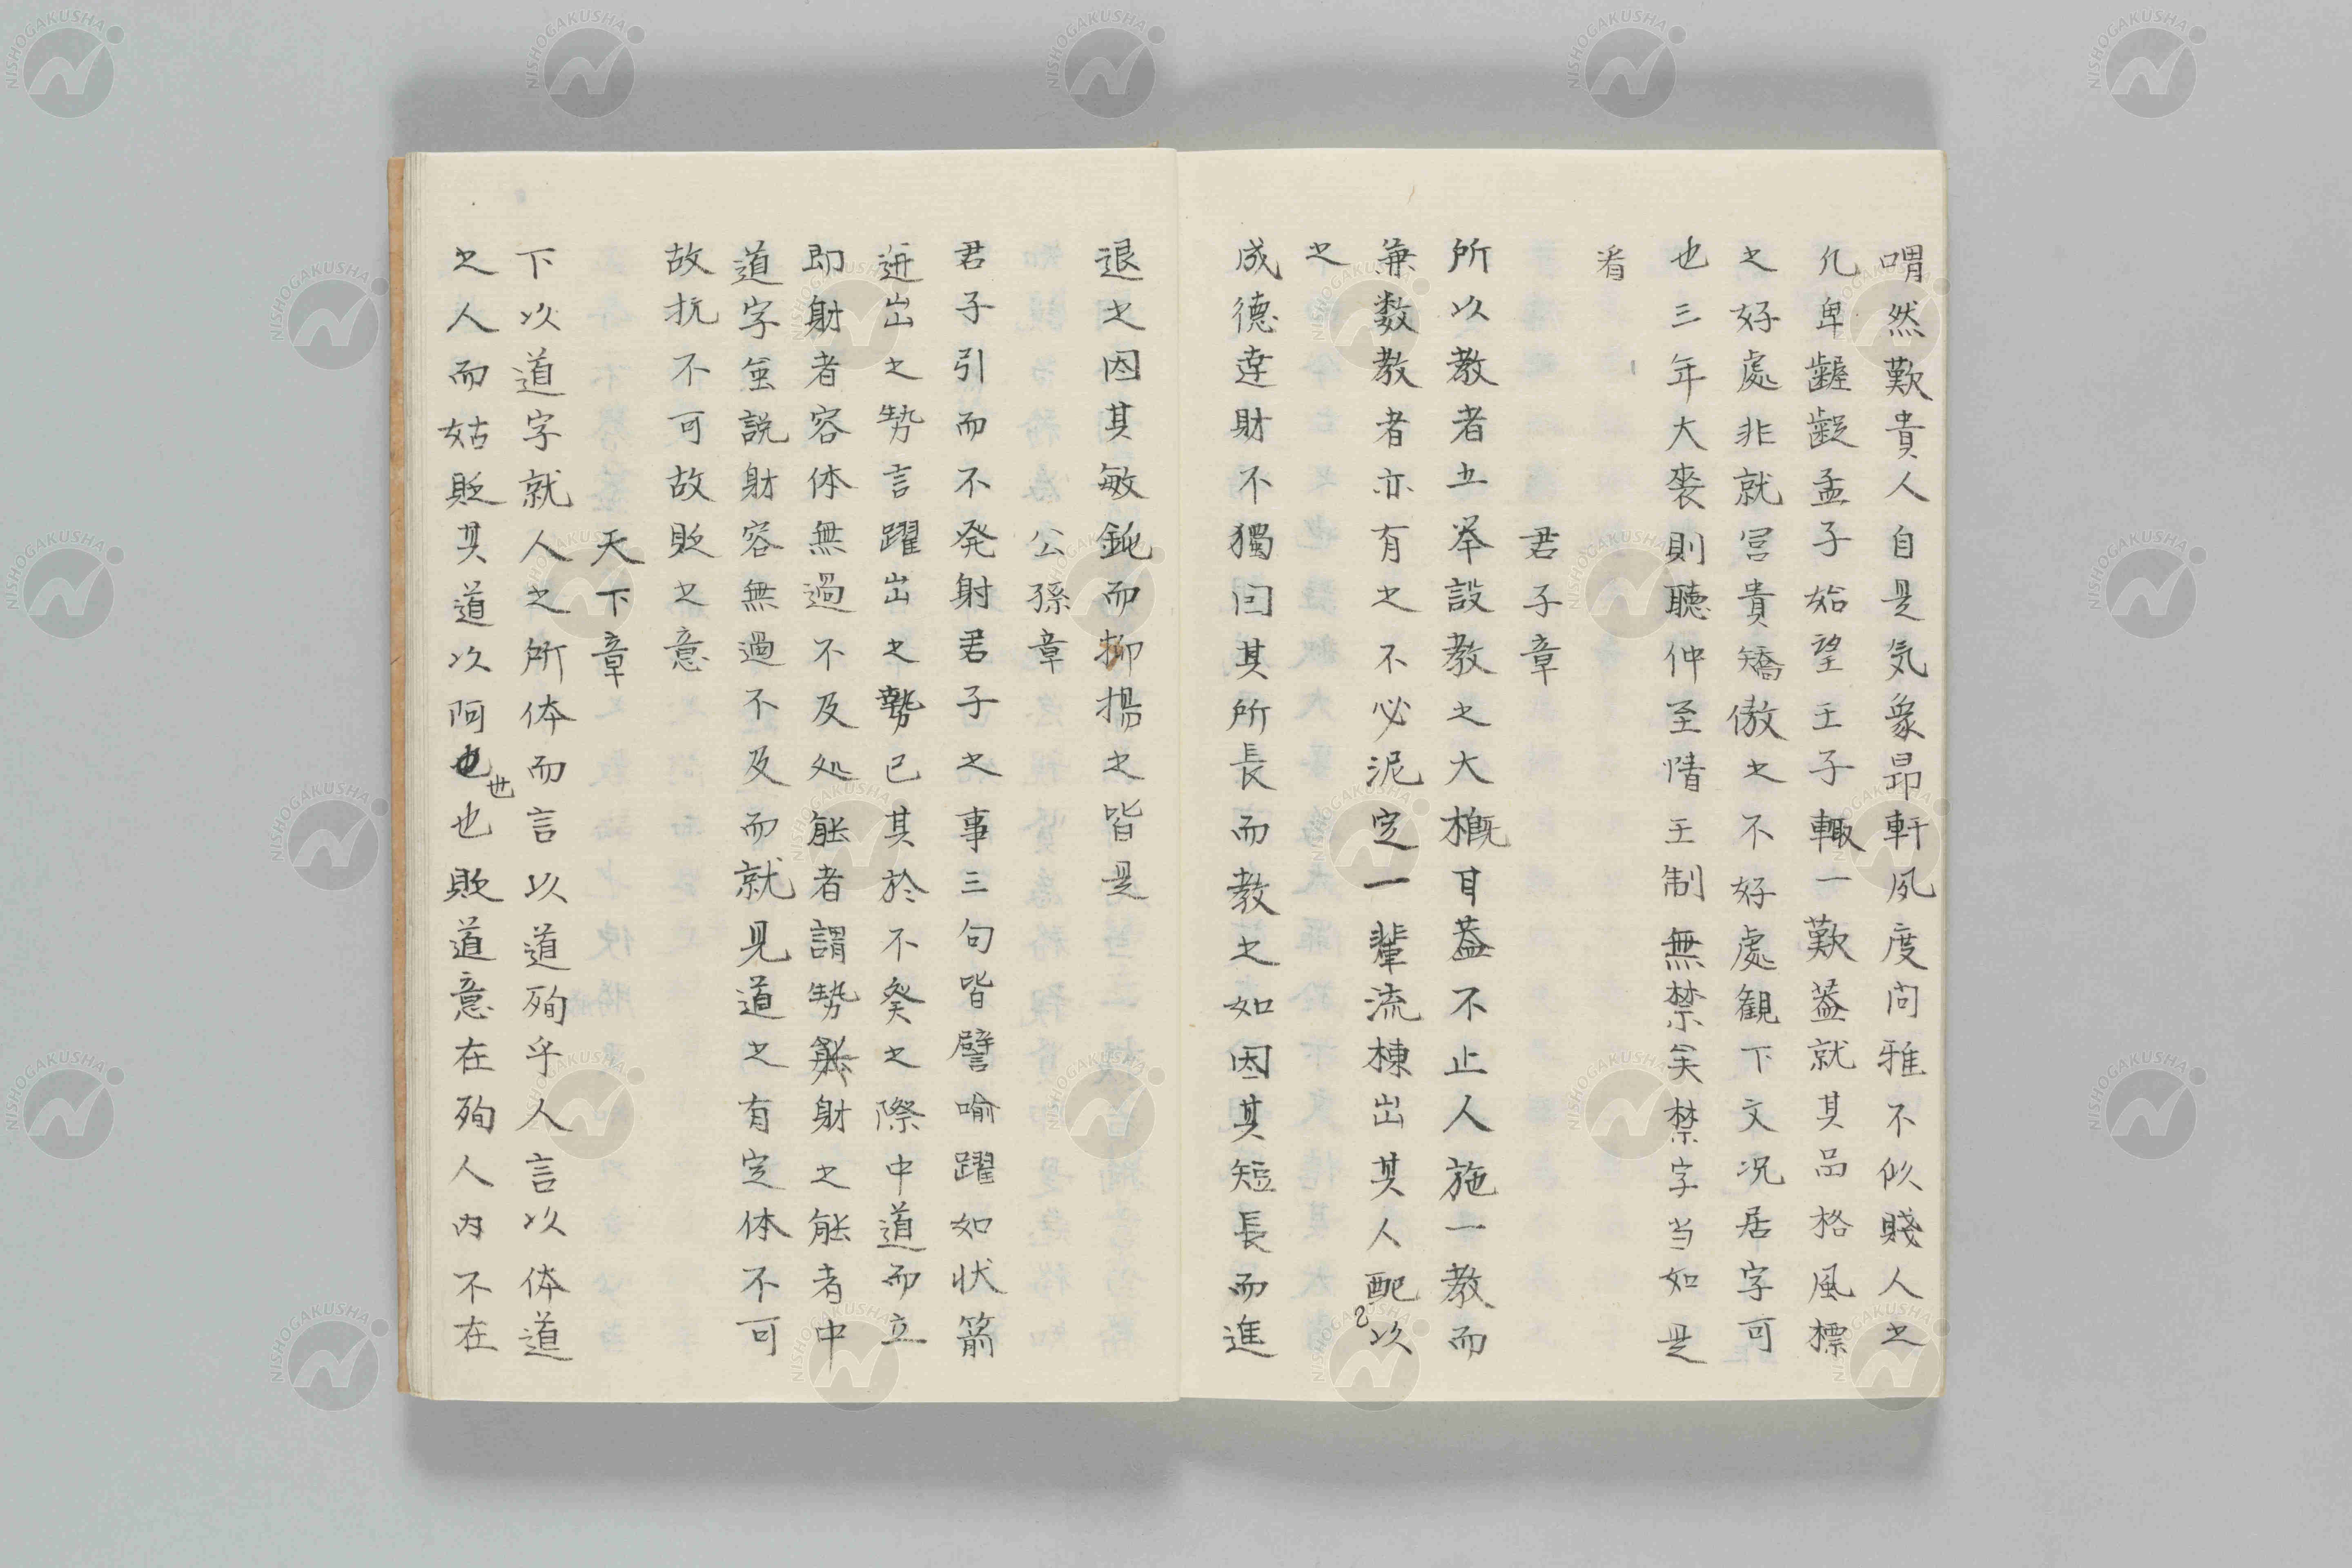 喟然歎貴人自是気象昂軒夙度向雅不似賤人之
凡卑齷齪孟子始望王子輙一歎蓋就其品格風標
之好處非就冨貴矯傲之不好處観下文况居字可
也三年大喪則聽仲至情王制無禁矣禁字当如是
看
君子章
所以教者五举設教之大概耳蓋不止人施一教而
兼数教者亦有之不必泥定一輩流棟出其人配以
之
成德達財不獨曰其所長而教之如因其短長而進
退之因其敏鈍而抑揚之皆是
公孫章
君子引而不発射君子之事三句皆譬喻躍如状箭
迸出之勢言躍出之勢已其於不発之際中道而立
即射者容体無過不及処能者謂勢射之能者中
道字虽説射容無過不及而就見道之有定体不可
故抗不可故貶之意
天下章
下以道字就人之所体而言以道殉乎人言以体道
之人而姑貶其道以阿世也敗道意在殉人内不在
NISHOGAKUSHA